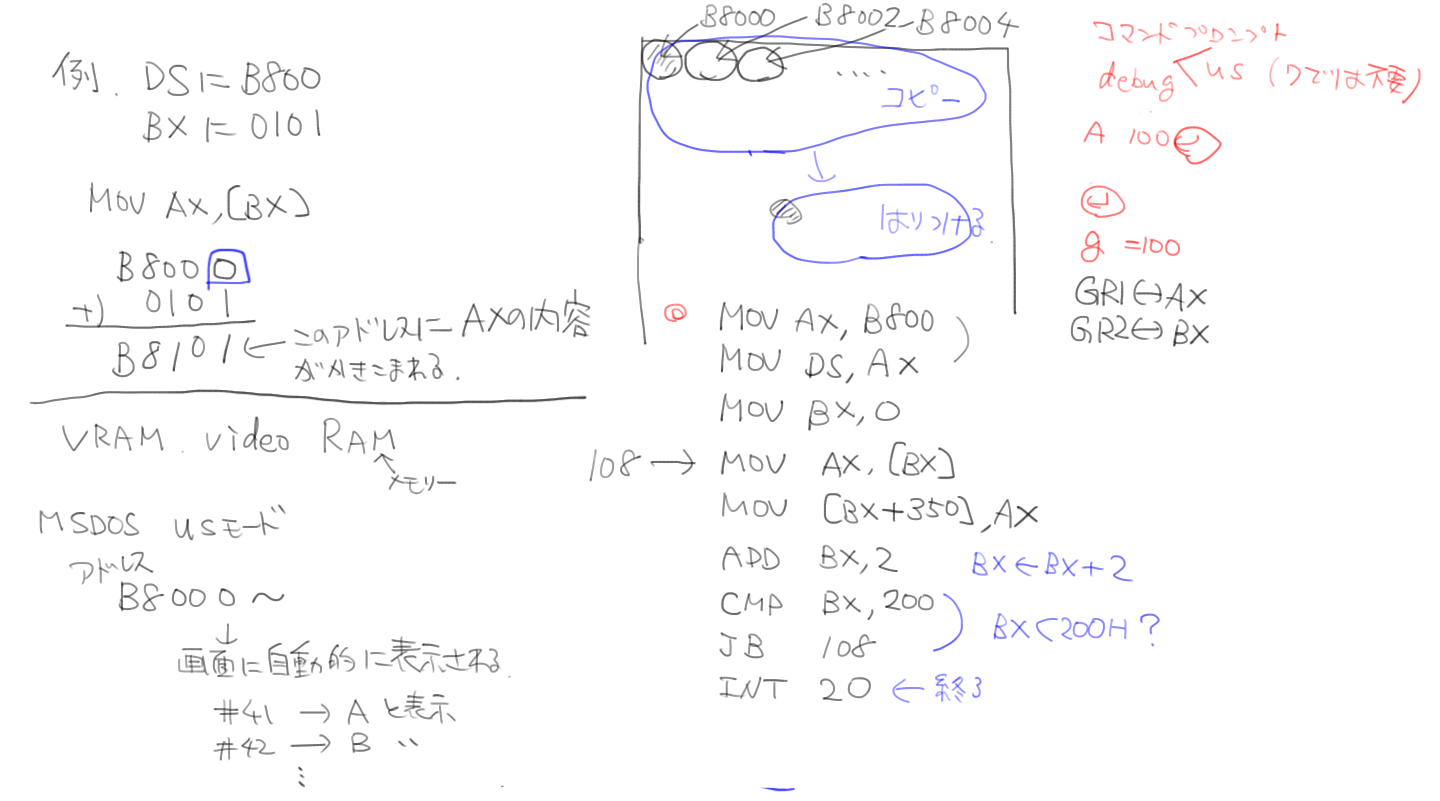 例. DSにB800
BXに0101
MOV AX,[BX]
B8000
+) 0101
B8101 ← このアドレスに AXの内容
がかきこまれる.
VRAM. video RAM
メモリー
MSDOS usモード
アドレス
B8000~
↓
画面に自動的に表示される.
#41 → A と表示
#42 → B 〃
⋮
B8000 B8002 B8004
‥‥
コピー
↓
はりつける.
◎ MOV AX, B800
MOV DS, AX
MOV BX, 0
108 → MOV AX, [BX]
MOV [BX+350],AX
ADD BX, 2 BX←BX+2
CMP BX, 200
JB 108 BX<200H?
INT 20 ←終了
コマンドプロンプト
debug us (ウでは不要)
A 100 ↵
↵
g =100
GR1↔AX
GR2↔BX